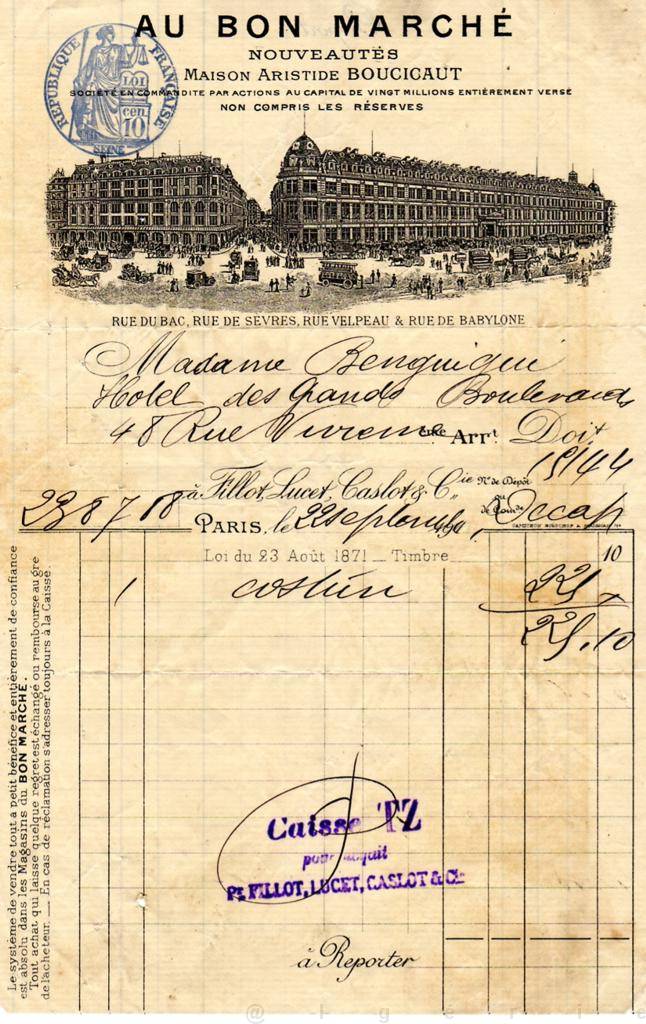 AU BON MARCHÉ
REPUBLIQUE FRANÇAISE
LOI
cen.
10
SEINE
NOUVEAUTÉS
MAISON ARISTIDE BOUCICAUT
SOCIÉTÉ EN COMMANDITE PAR ACTIONS AU CAPITAL DE VINGT MILLIONS ENTIÈREMENT VERSÉ
NON COMPRIS LES RÉSERVES
RUE DU BAC, RUE DE SÈVRES, RUE VELPEAU & RUE DE BABYLONE
Madame Benguigui
Hotel des Grands Boulevards
48 Rue Arrt. Doit
à Fillot, Lucet, Caslot & Cie No. de Dépôt 15144
238718 PARIS, le 22 septembre
Loi du 23 Août 1871 _ Timbre 10
1
10
Le système de vendre tout à petit bénéfice et entièrement de confiance
est absolu dans les Magasins du BON MARCHÉ.
Tout achat qui laisse quelque regret est échangé ou remboursé au gré
de l'acheteur. __ En cas de réclamation s'adresser toujours à la Caisse.
Caisse TZ
pour acquit
Pr. FILLOT, LUCET, CASLOT & Cie
à Reporter